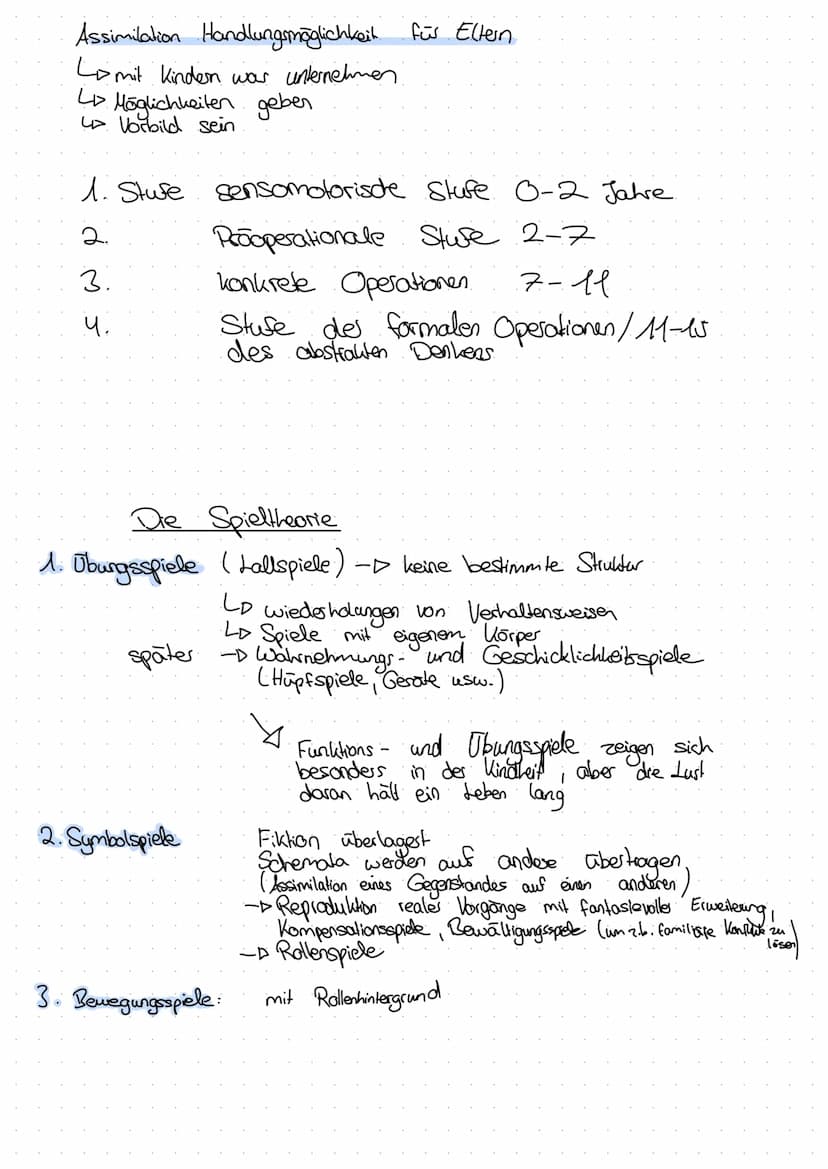 Assimilation Handlungsmöglichkeit für Eltern
↳ mit Kindern was unternehmen
↳ Möglichkeiten geben
↳ Vorbild sein
1. Stufe sensomotorische Stufe 0-2 Jahre
2. Präoperationale Stufe 2-7
3. konkrete Operationen 7-11
4. Stufe der formalen Operationen / 11-15
des abstrakten Denkens
Die Spieltheorie
1. Übungsspiele (Lallspiele) → keine bestimmte Struktur
↳ wiederholungen von Verhaltensweisen
↳ Spiele mit eigenem Körper
später → Wahrnehmungs- und Geschicklichkeitsspiele
(Hüpfspiele, Geräte usw.)
↘ Funktions- und Übungsspiele zeigen sich
besonders in der Kindheit, aber die Lust
daran hält ein Leben lang
2. Symbolspiele Fiktion überlagert
Schemata werden auf andere übertragen
(Assimilation eines Gegenstandes auf einen anderen)
→ Reproduktion realer Vorgänge mit fantasievoller Erweiterung,
Kompensationsspiele, Bewältigungsspiele (um z.b. familiäre Konflikte zu lösen)
→ Rollenspiele
3. Bewegungsspiele: mit Rollenhintergrund